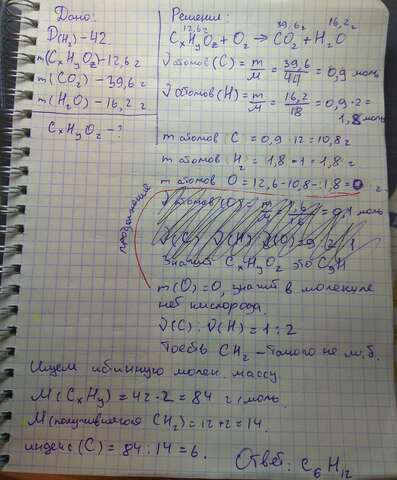 Дано:
D(H2) - 42
m(CxHyOz) - 12,6 г
m(CO2) - 39,6 г
m(H2O) - 16,2 г
CxHyOz - ?
Решение:
12,6 г 39,6 г 16,2 г
CxHyOz + O2 → CO2 + H2O
ν атомов (C) = m/M = 39,6/44 = 0,9 моль
ν атомов (H) = m/M = 16,2/18 = 0,9 · 2 =
1,8 моль
m атомов C = 0,9 · 12 = 10,8 г
m атомов H2 = 1,8 · 1 = 1,8 г
m атомов O = 12,6 - 10,8 - 1,8 = 0 г
продолжение
Значит CxHyOz это
m(O) = 0, значит в молекуле
нет кислорода.
ν(C) : ν(H) = 1 : 2
Тоесть CH2 - такого не м. б.
Ищем истинную молек. массу
M(CxHy) = 42 · 2 = 84 г/моль
M(получившегося CH2) = 12 + 2 = 14.
индекс (C) = 84 : 14 = 6.
Ответ: C6H12